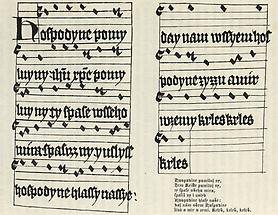 Hospodyne pomy
luy ny ihu xpe pomy
luy ny ty spase wsseho
mira spasiz ny yuslyss
hospodyne hlassy nassye
day nam wssyem hos
podyne zyzn a mir
wzemy krles krles
krles
Hospodine pomiluj ny,
pomiluj ny,
ty spase všeho míra,
spasiž ny i uslyš,
Hospodine hlasy naše:
daj nám všěm Hospodine
žizň a mír v zemi. Krleš, krleš, krleš.